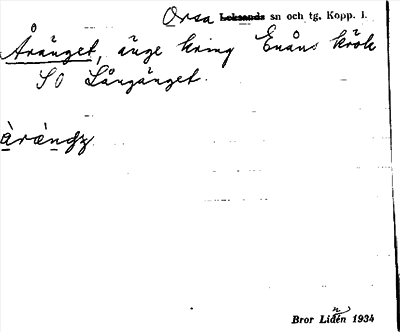 Orsa Leksands sn och tg, Kopp. l.
Åränget, änge kring Enåns krök
SO Långänget.
àrànGg
Bror Lidén 1934